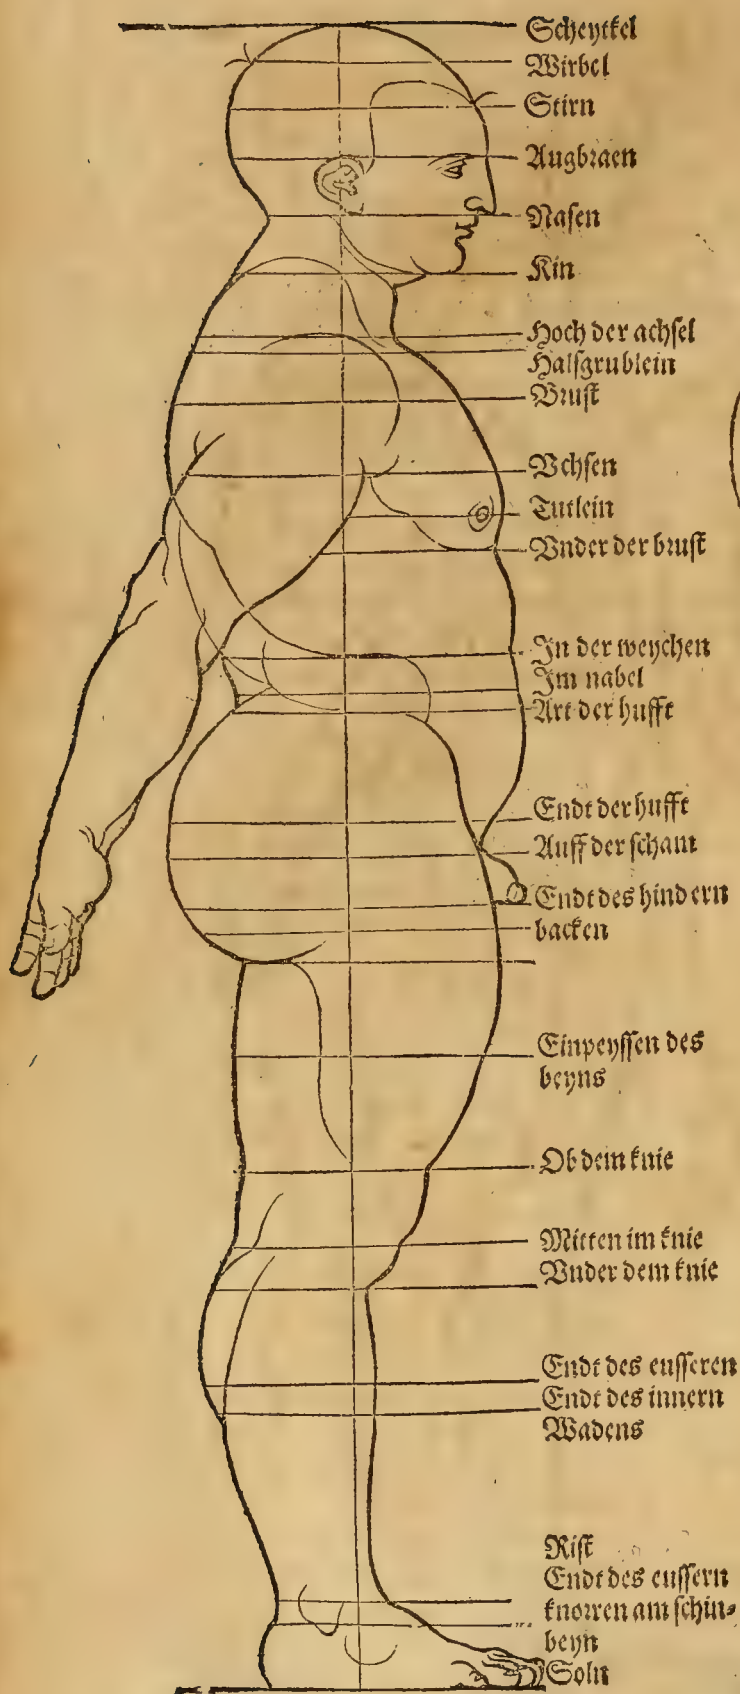 Scheyttel
Wirbel
Stirn
Augbraen
Nasen
Kin
Hoch der achsel
Halsgrublein
Brust
Vchsen
Tutlein
Vnder der brust
In der weychen
Im nabel
Art der hufft
Endt der hufft
Auff der scham
Endt des hindern
backen
Einpeyssen des
beyns
Ob dem knie
Mitten im knie
Vnder dem knie
Endt des eusseren
Endt des innern
Wadens
Rist
Endt des eussern
knorren am schin⸗
beyn
Soln